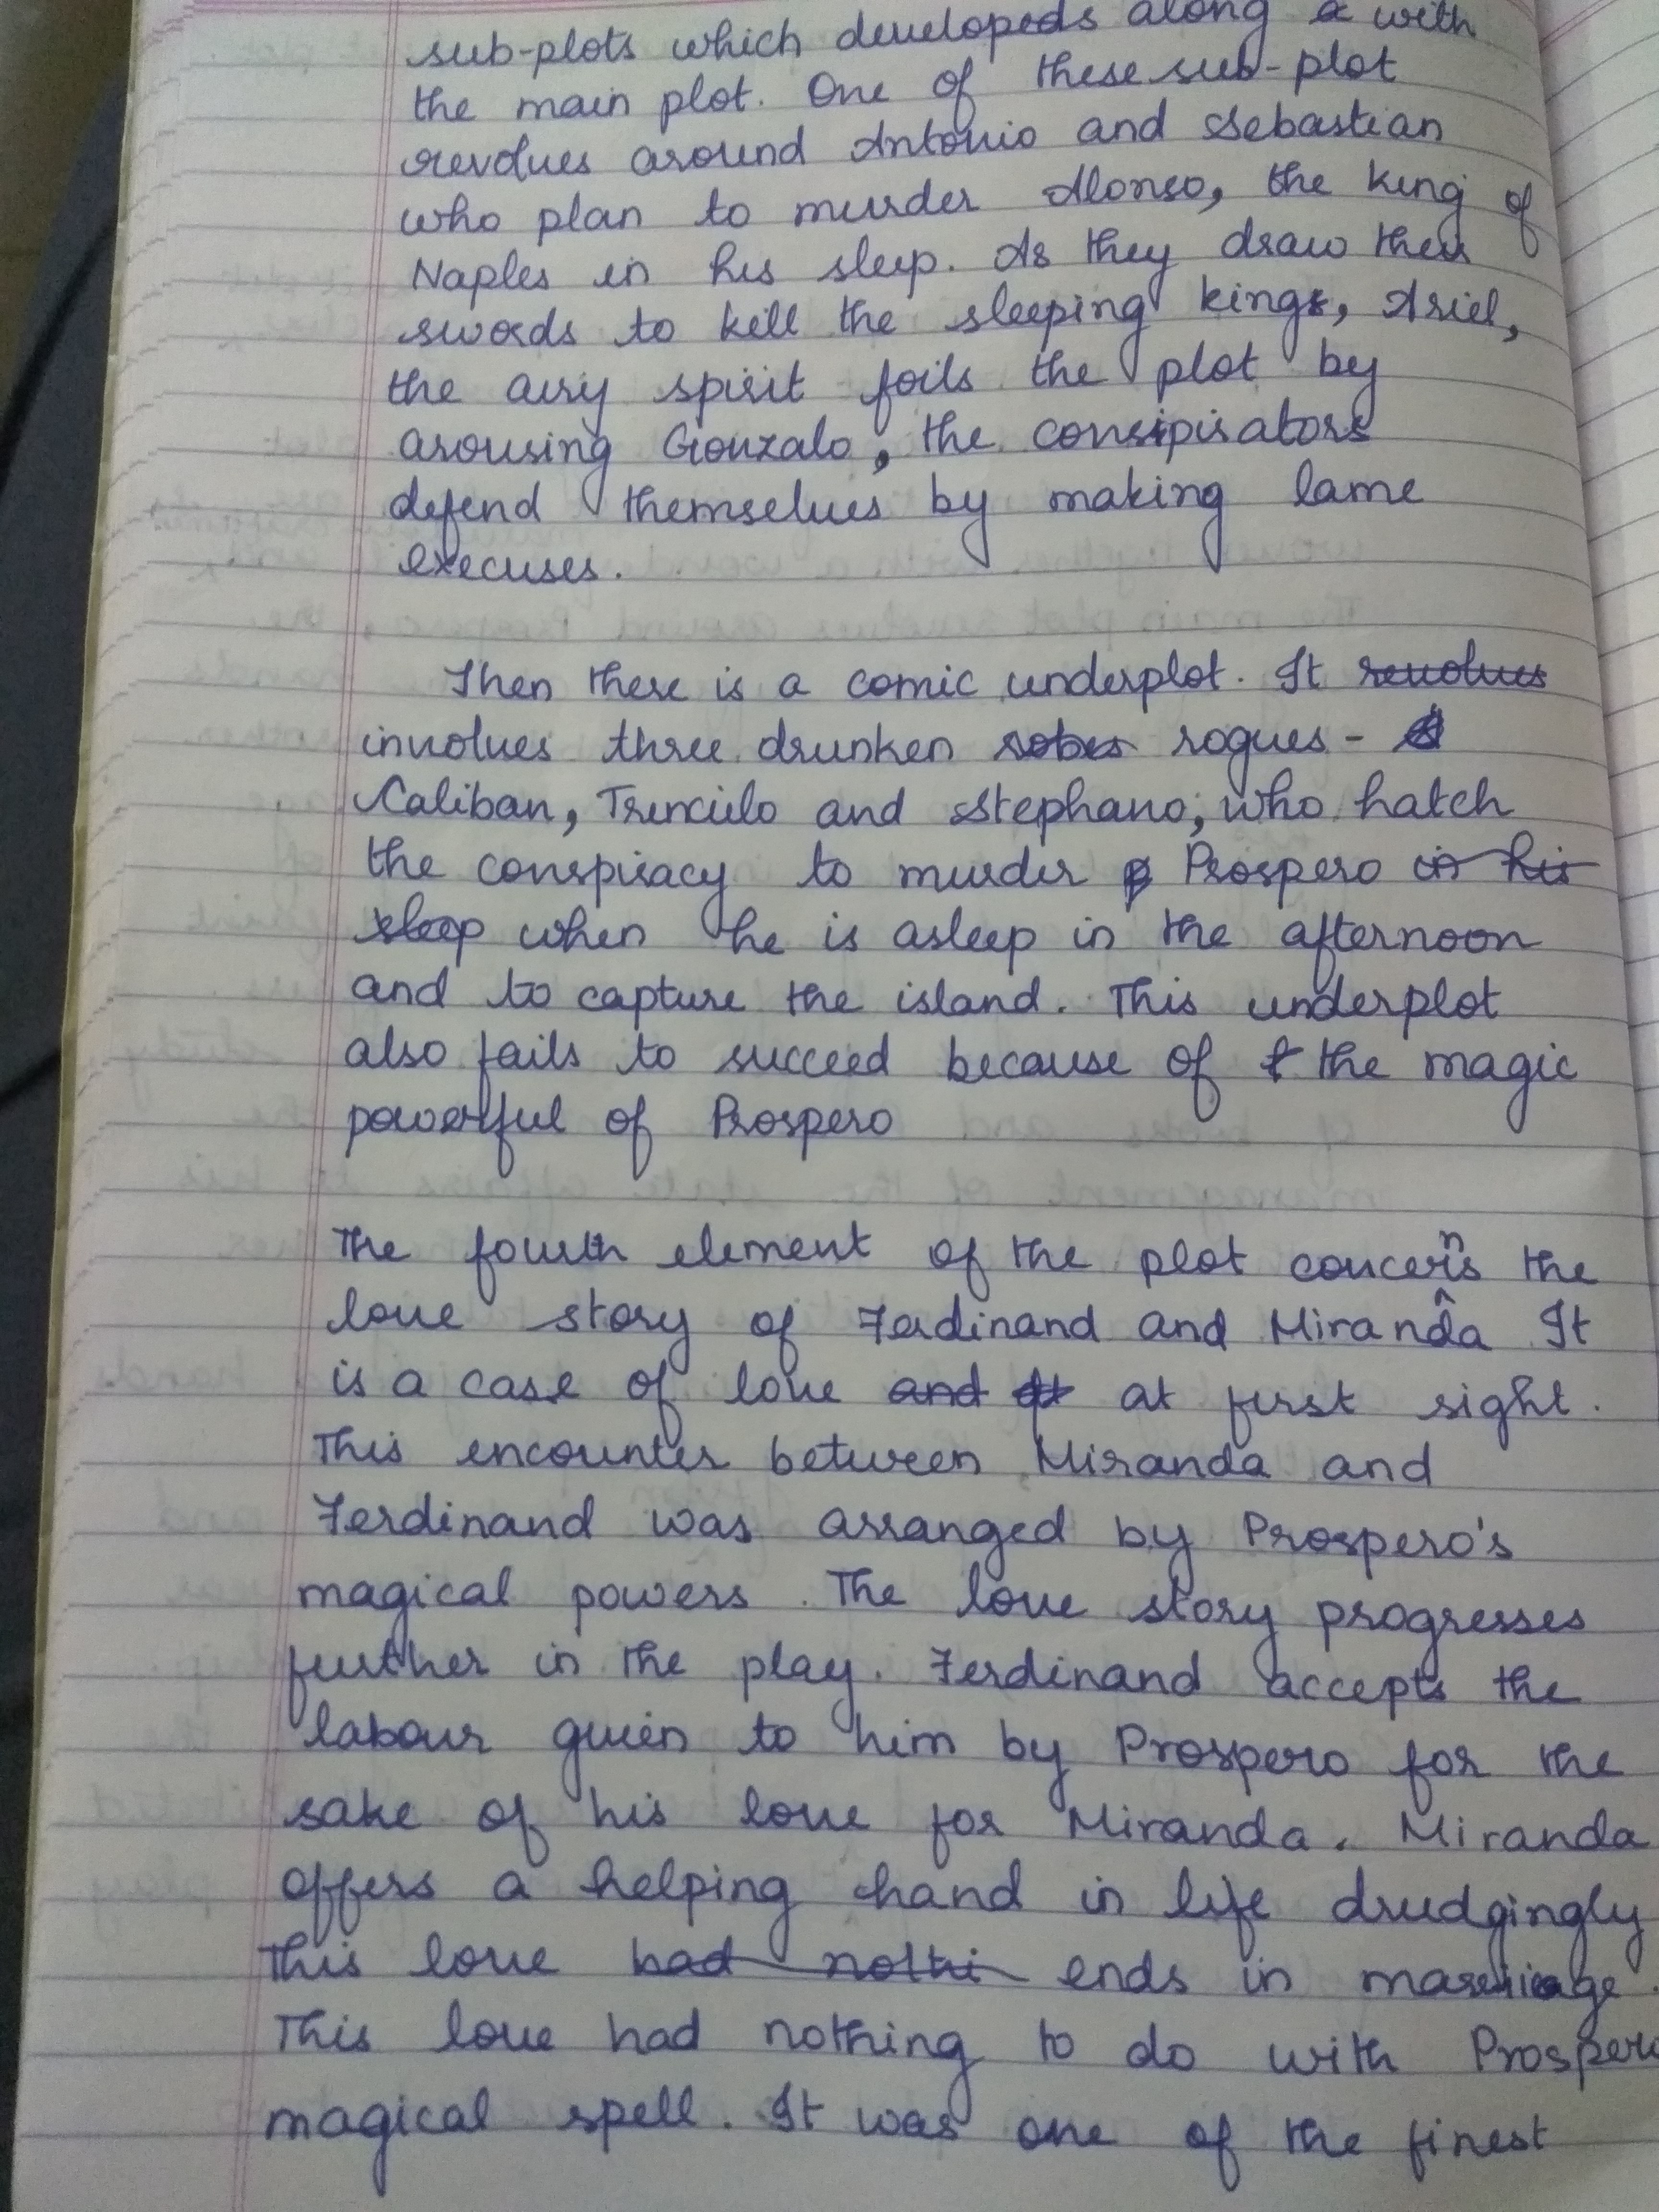 sub-plots which developeds along a with
the main plot. One of these sub-plot
revolves around Antonio and Sebastian
who plan to murder Alonso, the king of
Naples in his sleep. As they draw their
swords to kill the sleeping king, Ariel,
the airy spirit foils the plot by
arousing Gonzalo, the consipirators
defend themselves by making lame
execuses.
Then there is a comic underplot. It revolves
involves three drunken sober rogues -
Caliban, Trinculo and Stephano, who hatch
the conspiracy to murder Prospero in his
sleep when he is asleep in the afternoon
and to capture the island. This underplot
also fails to succeed because of t the magic
powerful of Prospero
The fourth element of the plot concerns the
love story of Ferdinand and Miranda It
is a case of love and at first sight.
This encounter between Miranda and
Ferdinand was arranged by Prospero's
magical powers. The love story progresses
further in the play. Ferdinand accepts the
labour given to him by Prospero for the
sake of his love for Miranda. Miranda
offers a helping hand in life drudgingly
This love had nothi ends in marriage.
This love had nothing to do with Prospero
magical spell. It was one of the finest